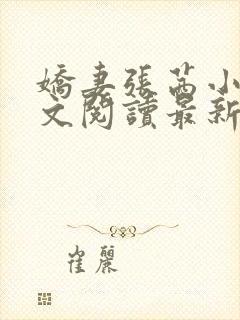 嬌妻張茜小
文閱讀最新
崔麗